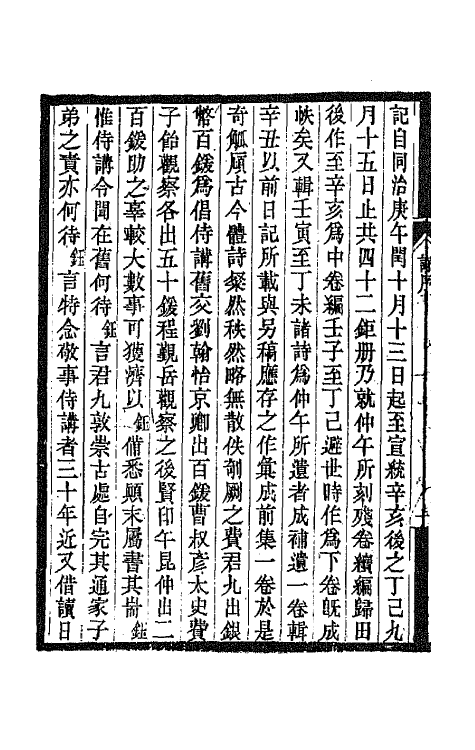 記自同治庚午閏十月十三日起至宣統辛亥後之丁己九
月十五日止共四十二鉅册乃就仲午所刻殘卷續編歸田
後作至辛亥爲中卷編壬子至丁己避世時作爲下卷旣成
帙矣又輯壬寅至丁未諸詩爲仲午所遺者成補遺一卷輯
辛丑以前日記所載與另稿應存之作彙成前集一卷於是
奇觚廎古今體詩粲然秩然略無散佚剞劂之費君九出銀
幣百鍰爲倡侍講舊交劉翰怡京卿出百鍰曹叔彥太史費
子飴觀察各出五十鍰程覲岳觀察之後賢印午昆仲出二
百鍰助之辜較大數事可獲濟以鈺備悉顚末屬書其耑鈺
惟侍講令聞在舊何待鈺言君九敦崇古處自完其通家子
弟之責亦何待鈺言特念敬事侍講者三十年近又借讀日